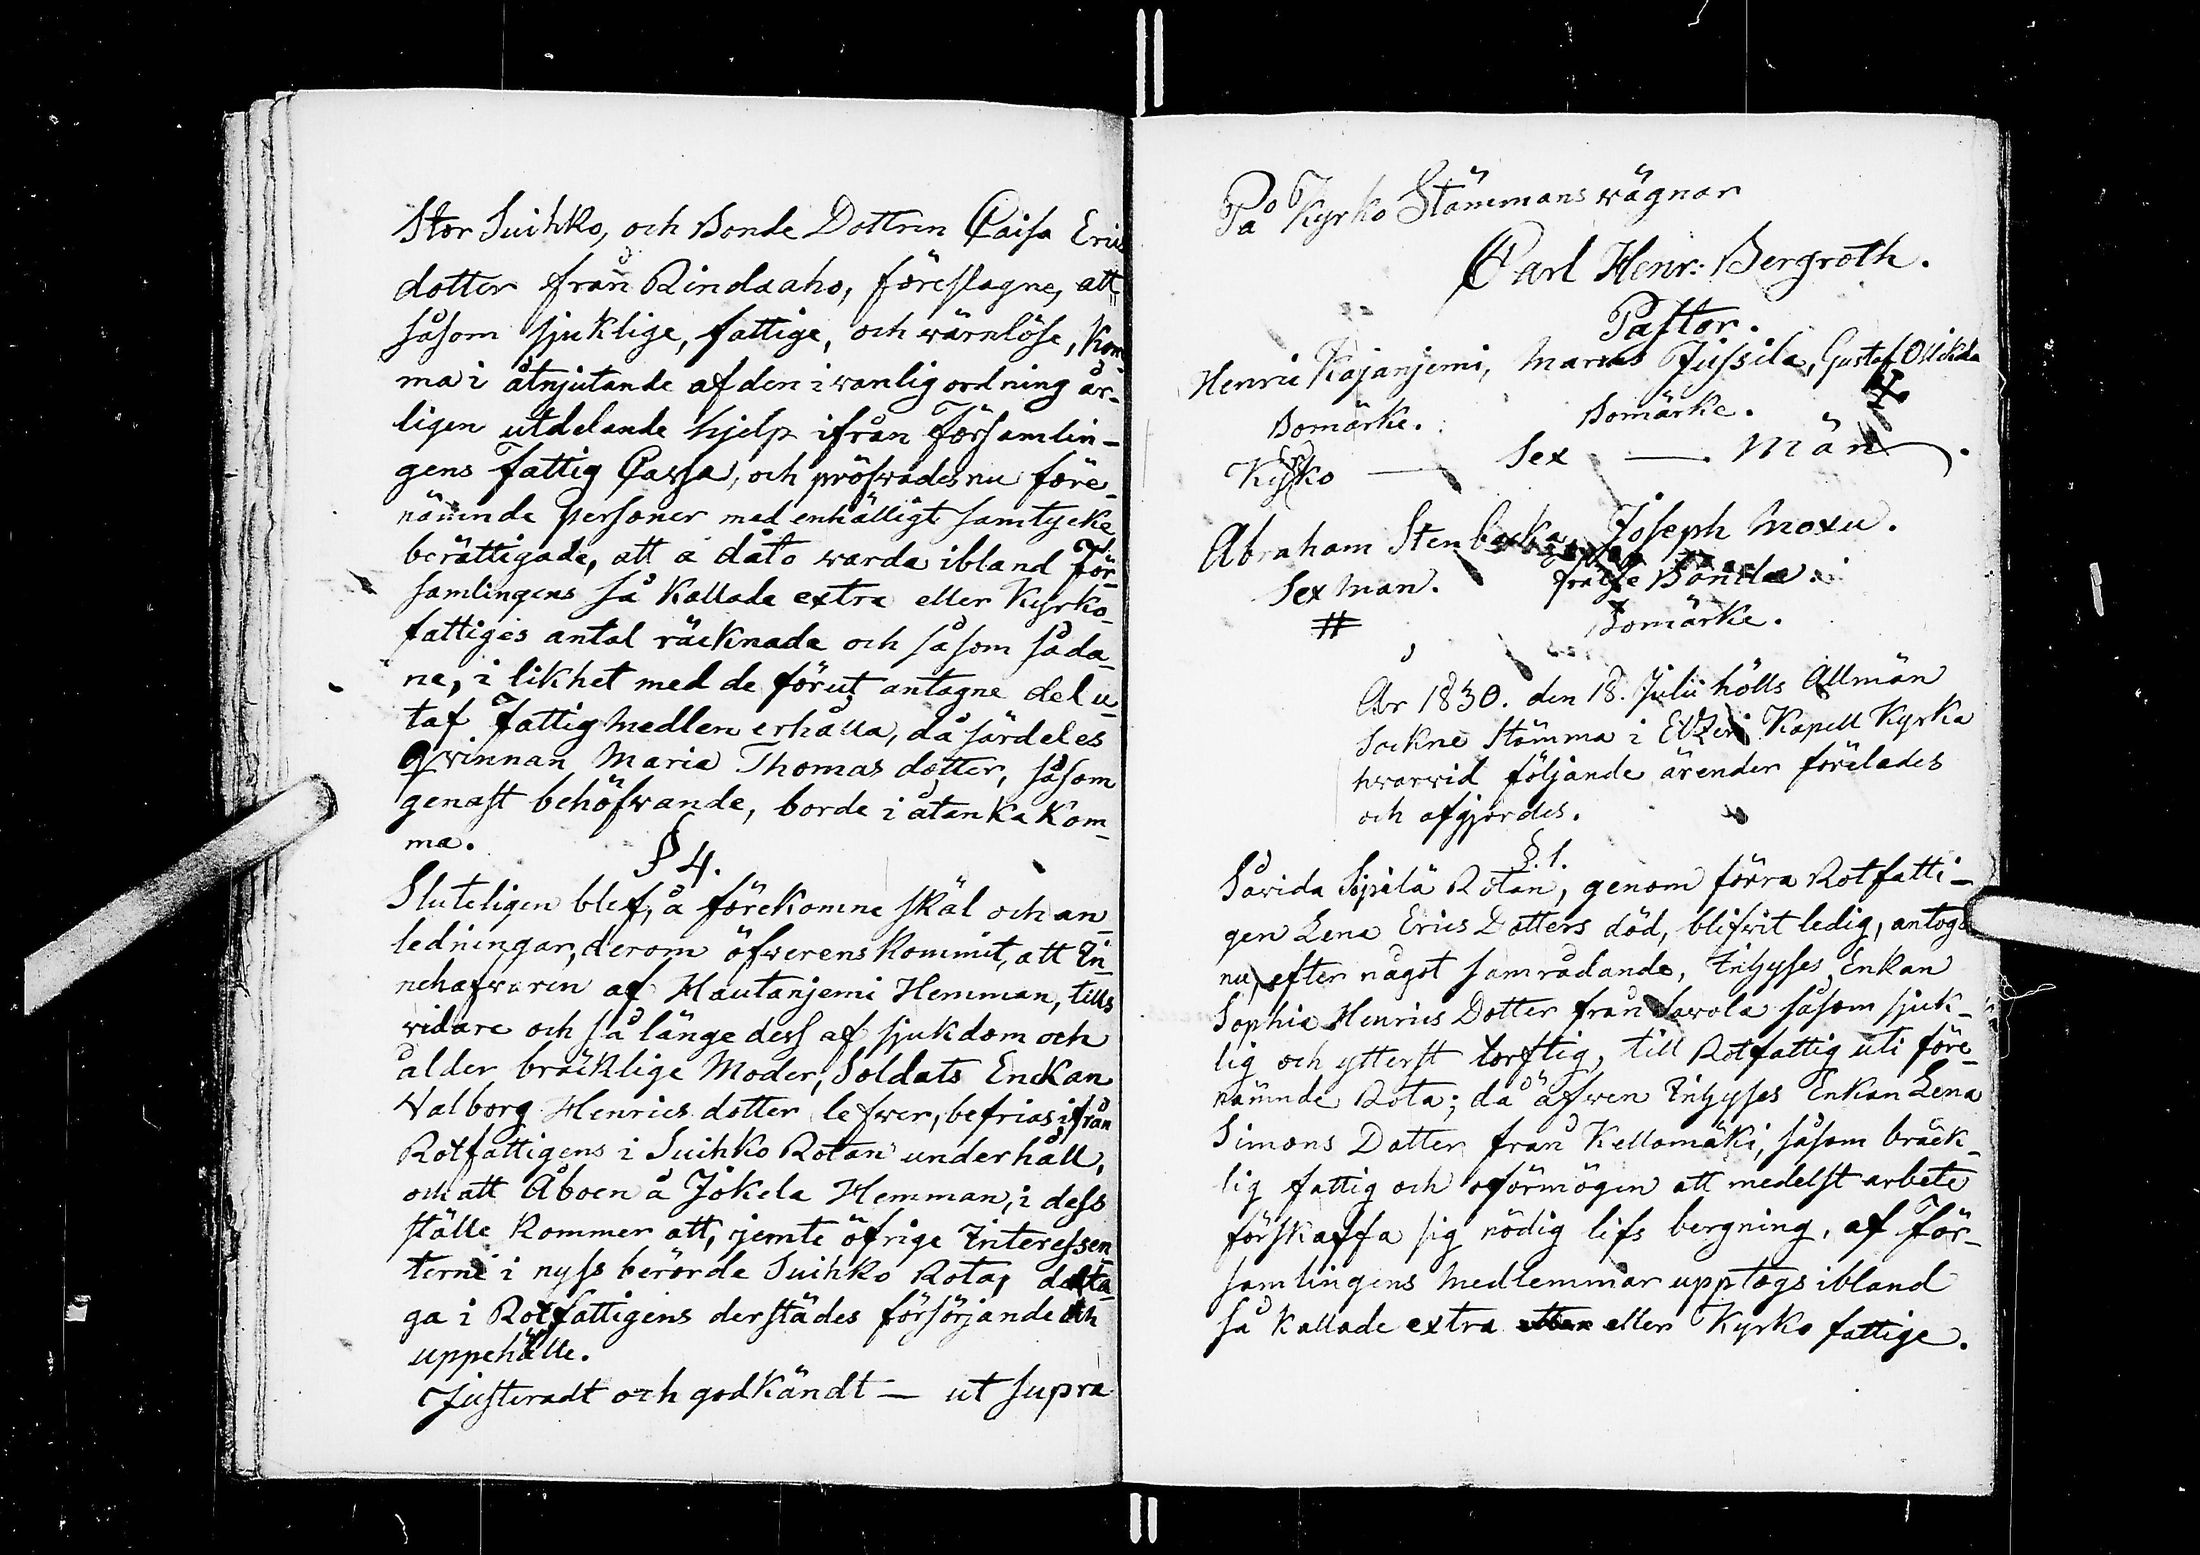 Stor Suihko, och Bonde Dottren Caisa Erics
dotter från Rindaaho, föreslagne, att
såsom sjuklige, fattige, och wärnlöse, kom¬
ma i åtnjutande af den i wanlig ordning år¬
ligen utdelande hjelp ifrån Församlin¬
gens Fattig Cassa, och pröfwades nu före¬
nämnde personer med enhälligt samtycke
berättigade, att a dato warda ibland För¬
samlingens så kallade extra eller Kyrko¬
fattiges antal räcknade och såsom såda¬
ne, i likhet med de förut antagne del u¬
taf Fattig Medlen erhålla, då särdeles
Qwinnan Maria Thomas dotter, såsom
genast behöfwande, borde i åtanka kom¬
ma.
§ 4.
Sluteligen blef, å förekomne skäl och an¬
ledningar, derom öfwerenskommit, att In¬
nehafwaren af Hautanjemi Hemman, tills
vidare och så länge dess af sjukdom och
ålder bräcklige Moder, Soldats Enckan
Walborg Henrics dotter lefwer, befrias ifrån
Rotfattigens i Suihko Rotan underhåll,
och att Åboen å Jokela Hemman, i dess
ställe kommer att, jemte öfrige Interessen¬
terne i nyss berörde Suihko Rota, delta¬
ga i Rotfattigens derstädes försörjande och
uppehälle.
Justeradt och godkändt — ut supra
På Kyrko Stämmans wägnar
Carl Henr: Bergroth.
Pastor.
Henric Kajanjemi, Marcus Jussila, Gustaf Ollikala
Bomärke. Bomärke.
Kyrko — Sex — Män.
Abraham Stenbacka, Joseph Moxu.
Sex Man. Bonde
# Bomärke.
År 1830. den 18. Julii hölls Allmän
Sockne Stämma i Etzeri Kapell Kyrka
hwarwid följande ärender förelades
och afgjordes.
§. 1.
Såvida Sipilä Rotan, genom förra Rotfatti¬
gen Lena Erics Dotters död, blifvit ledig, antogs
nu, efter något samrådande, Inhyses Enkan
Sophia Henrics Dotter från Savola såsom sjuk¬
lig och ytterst torftig, till Rotfattig uti före¬
nämnde Rota; då äfwen Inhyses Enkan Lena
Simons Dotter från Kellomäki, såsom bräck¬
lig fattig och oförmögen att medelst arbete
förskaffa sig nödig lifs bergning, af För¬
samlingens Medlemmar upptogs ibland
så kallade extra eller Kyrko fattige.